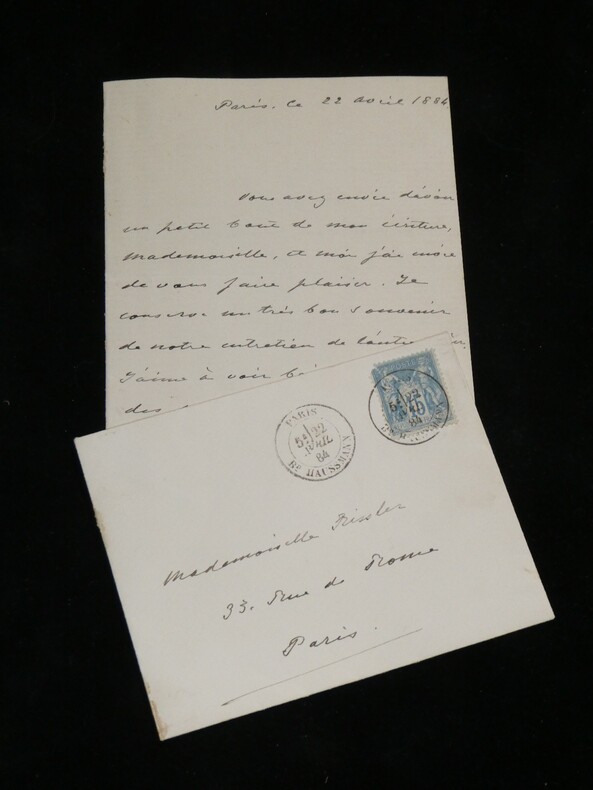 Paris, le 22 avril 1884
Vous avez envie d'avoir
un petit bout de mon écriture,
Mademoiselle, et moi j'ai
de vous faire plaisir. Je
conserve un très bon souvenir
de notre entretien de l'autre
J'aime à voir
des
PARIS
5E 22
AVRIL
84
Bd HAUSSMANN
15
5E 22
84
Mademoiselle
33, Rue de Rome
Paris.